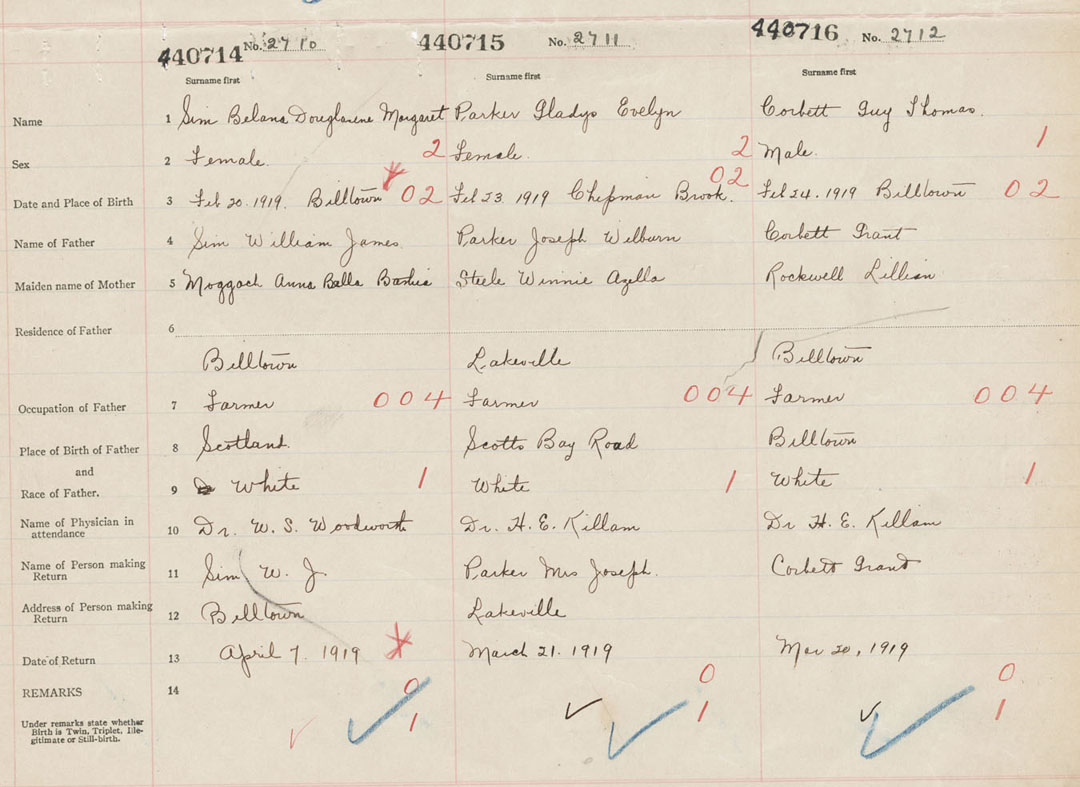 440714 No. 2710 440715 No. 2711 440716 No. 2712
Surname first Surname first Surname first
Name 1 Sim Belana Douglasene Margaret Parker Gladys Evelyn Corbett Guy Thomas.
Sex 2 Female. 2 Female. 2 Male. 1
Date and Place of Birth 3 Feb 20. 1919. Billtown 02 Feb 23. 1919 Chipman Brook. 02 Feb 24. 1919 Billtown 02
Name of Father 4 Sim William James. Parker Joseph Wilburn Corbett Grant
Maiden name of Mother 5 Moggach Anna Balla Steele Winnie Azella Rockwell Lillian
Residence of Father 6
Billtown Lakeville Billtown
Occupation of Father 7 Farmer 004 Farmer 004 Farmer 004
Place of Birth of Father 8 Scotland. Scotts Bay Road Billtown
and
Race of Father. 9 White 1 White 1 White 1
Name of Physician in attendance 10 Dr. W. S. Woodworth Dr. H. E. Killam Dr H. E. Killam
Name of Person making Return 11 Sim W. J Parker Mrs Joseph. Corbett Grant
Address of Person making Return 12 Billtown Lakeville
Date of Return 13 April 7. 1919 March 21. 1919 Mar 20, 1919
REMARKS 14 0 0 0
Under remarks state whether Birth is Twin, Triplet, Ille-
gitimate or Still-birth. 1 1 1